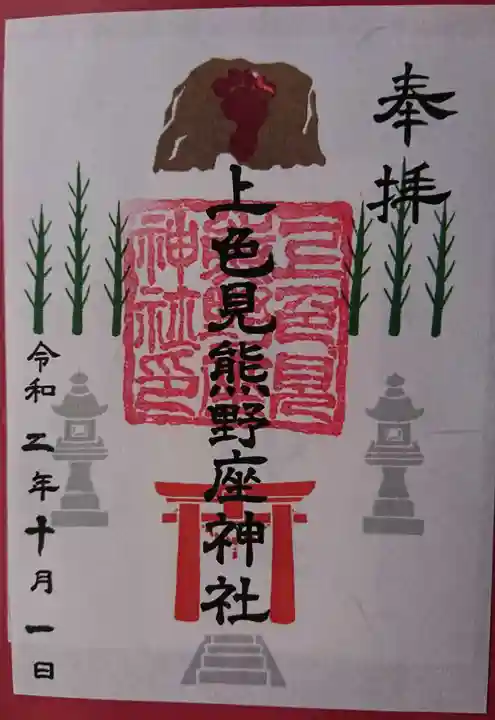 奉拝
上色見熊野座神社
上色見熊野座神社印
令和二年十月一日